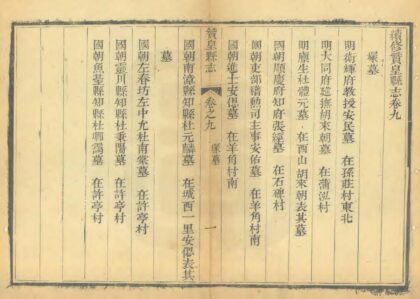 續修贊皇縣志卷九
塚墓
明衛輝府教授安民墓 在孫莊村東北
明大同府巡撫胡來朝墓 在蒲泓村
明廩生社體元墓 在西山胡來朝表其墓
國朝順慶府知府張經墓 在石碑村
國朝吏部稽勳司主事安佑墓 在羊角村南
國朝進士安偲墓 在羊角村南
贊皇縣志 卷之九 塚墓 一
國朝南漳縣知縣杜元麟墓 在城西一里安偲表其
墓
國朝左春坊左中允杜南棠墓 在許亭村
國朝靈川縣知縣杜秉陽墓 在許亭村
國朝魚臺縣知縣杜 墓 在許亭村